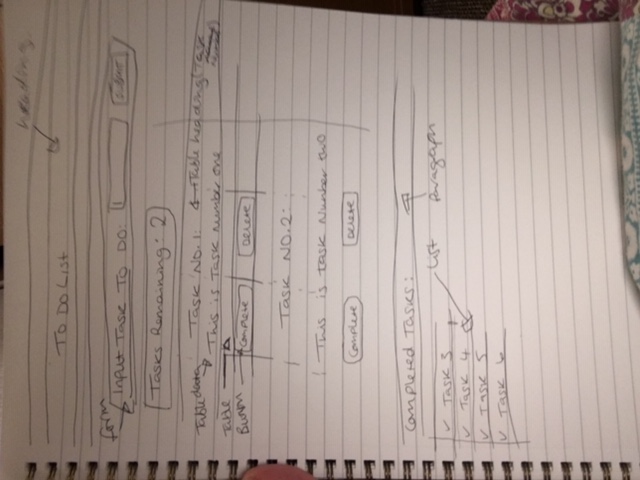 heading
TO DO LIST
form
Input Task To Do: Submit
Tasks Remaining: 2
Table data Task No.1: Table heading (Task
This is Task number one
Table
Button
Complete Delete
Task NO.2:
This is task Number two
Complete Delete
Completed Tasks:
List Paragraph
✓ Task 3
✓ Task 4
✓ Task 5
✓ Task 6